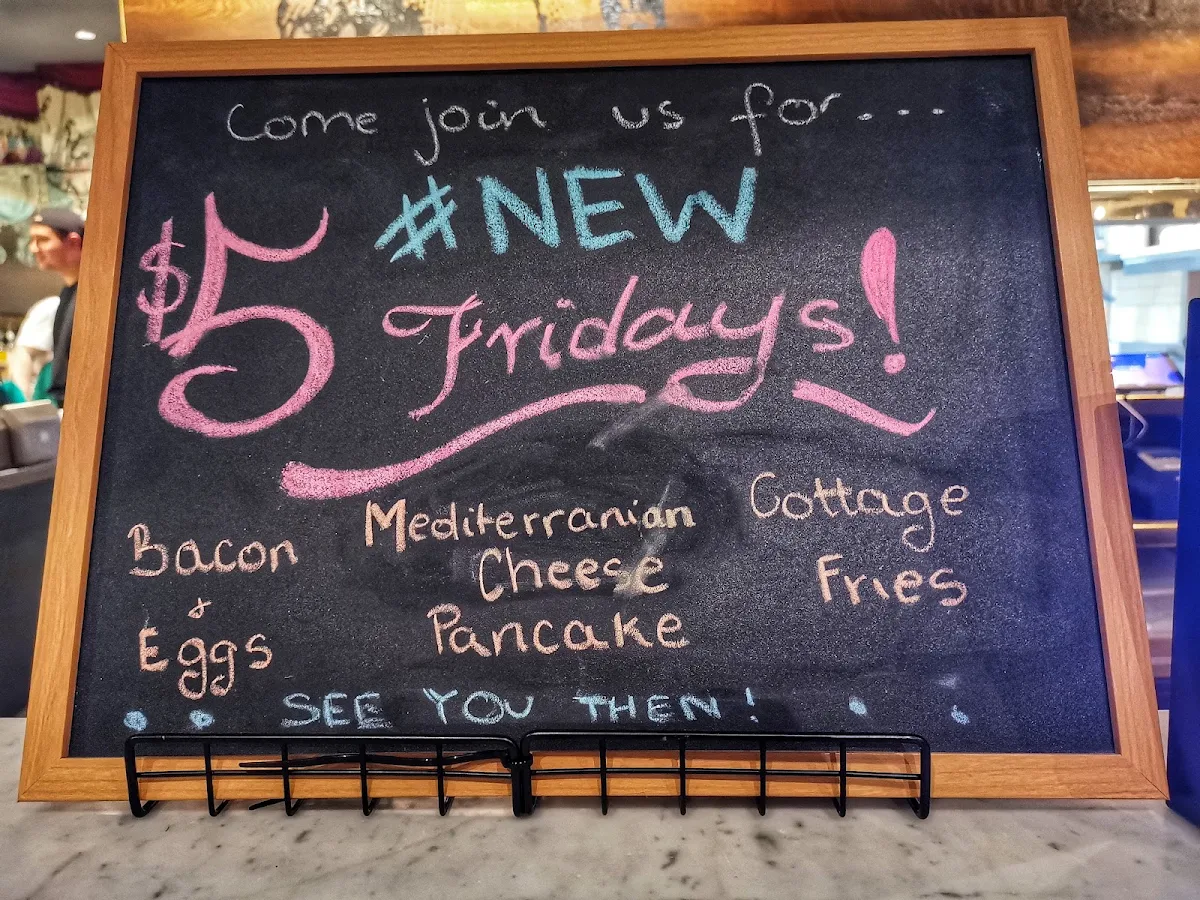 Come join us for...
#NEW
$5 Fridays!
Bacon
&
Eggs
Mediterranian
Cheese
Pancake
Cottage
Fries
SEE YOU THEN!